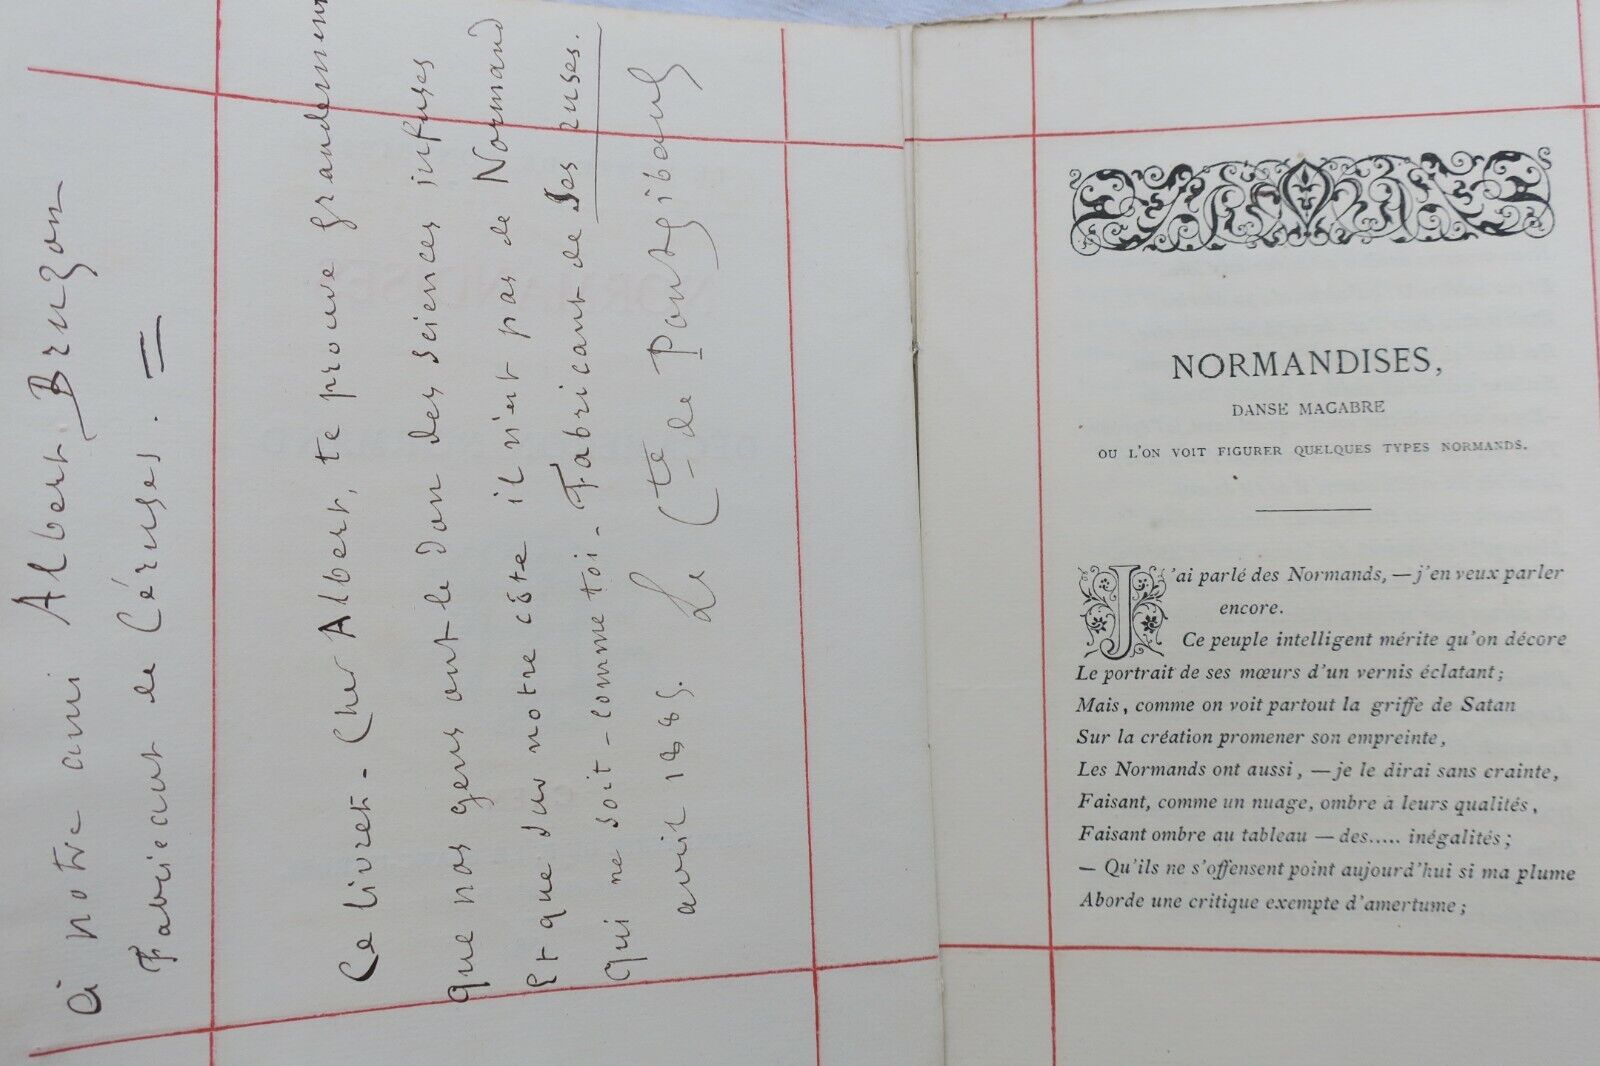 à notre ami Albert Bruzon
Fabricant de Céruses.
Ce livret - Cher Albert, te prouve grandement
que nos gens ont le don des sciences infuses
Et que sur notre côte il n'est pas de Normand
Qui ne soit - comme toi - Fabricant de Ses ruses.
avril 1885. Le Cte de Pontgibaud
NORMANDISES,
DANSE MACABRE
OU L'ON VOIT FIGURER QUELQUES TYPES NORMANDS.
J'ai parlé des Normands, — j'en veux parler
encore.
Ce peuple intelligent mérite qu'on décore
Le portrait de ses mœurs d'un vernis éclatant;
Mais, comme on voit partout la griffe de Satan
Sur la création promener son empreinte,
Les Normands ont aussi, — je le dirai sans crainte,
Faisant, comme un nuage, ombre à leurs qualités,
Faisant ombre au tableau — des..... inégalités;
— Qu'ils ne s'offensent point aujourd'hui si ma plume
Aborde une critique exempte d'amertume;